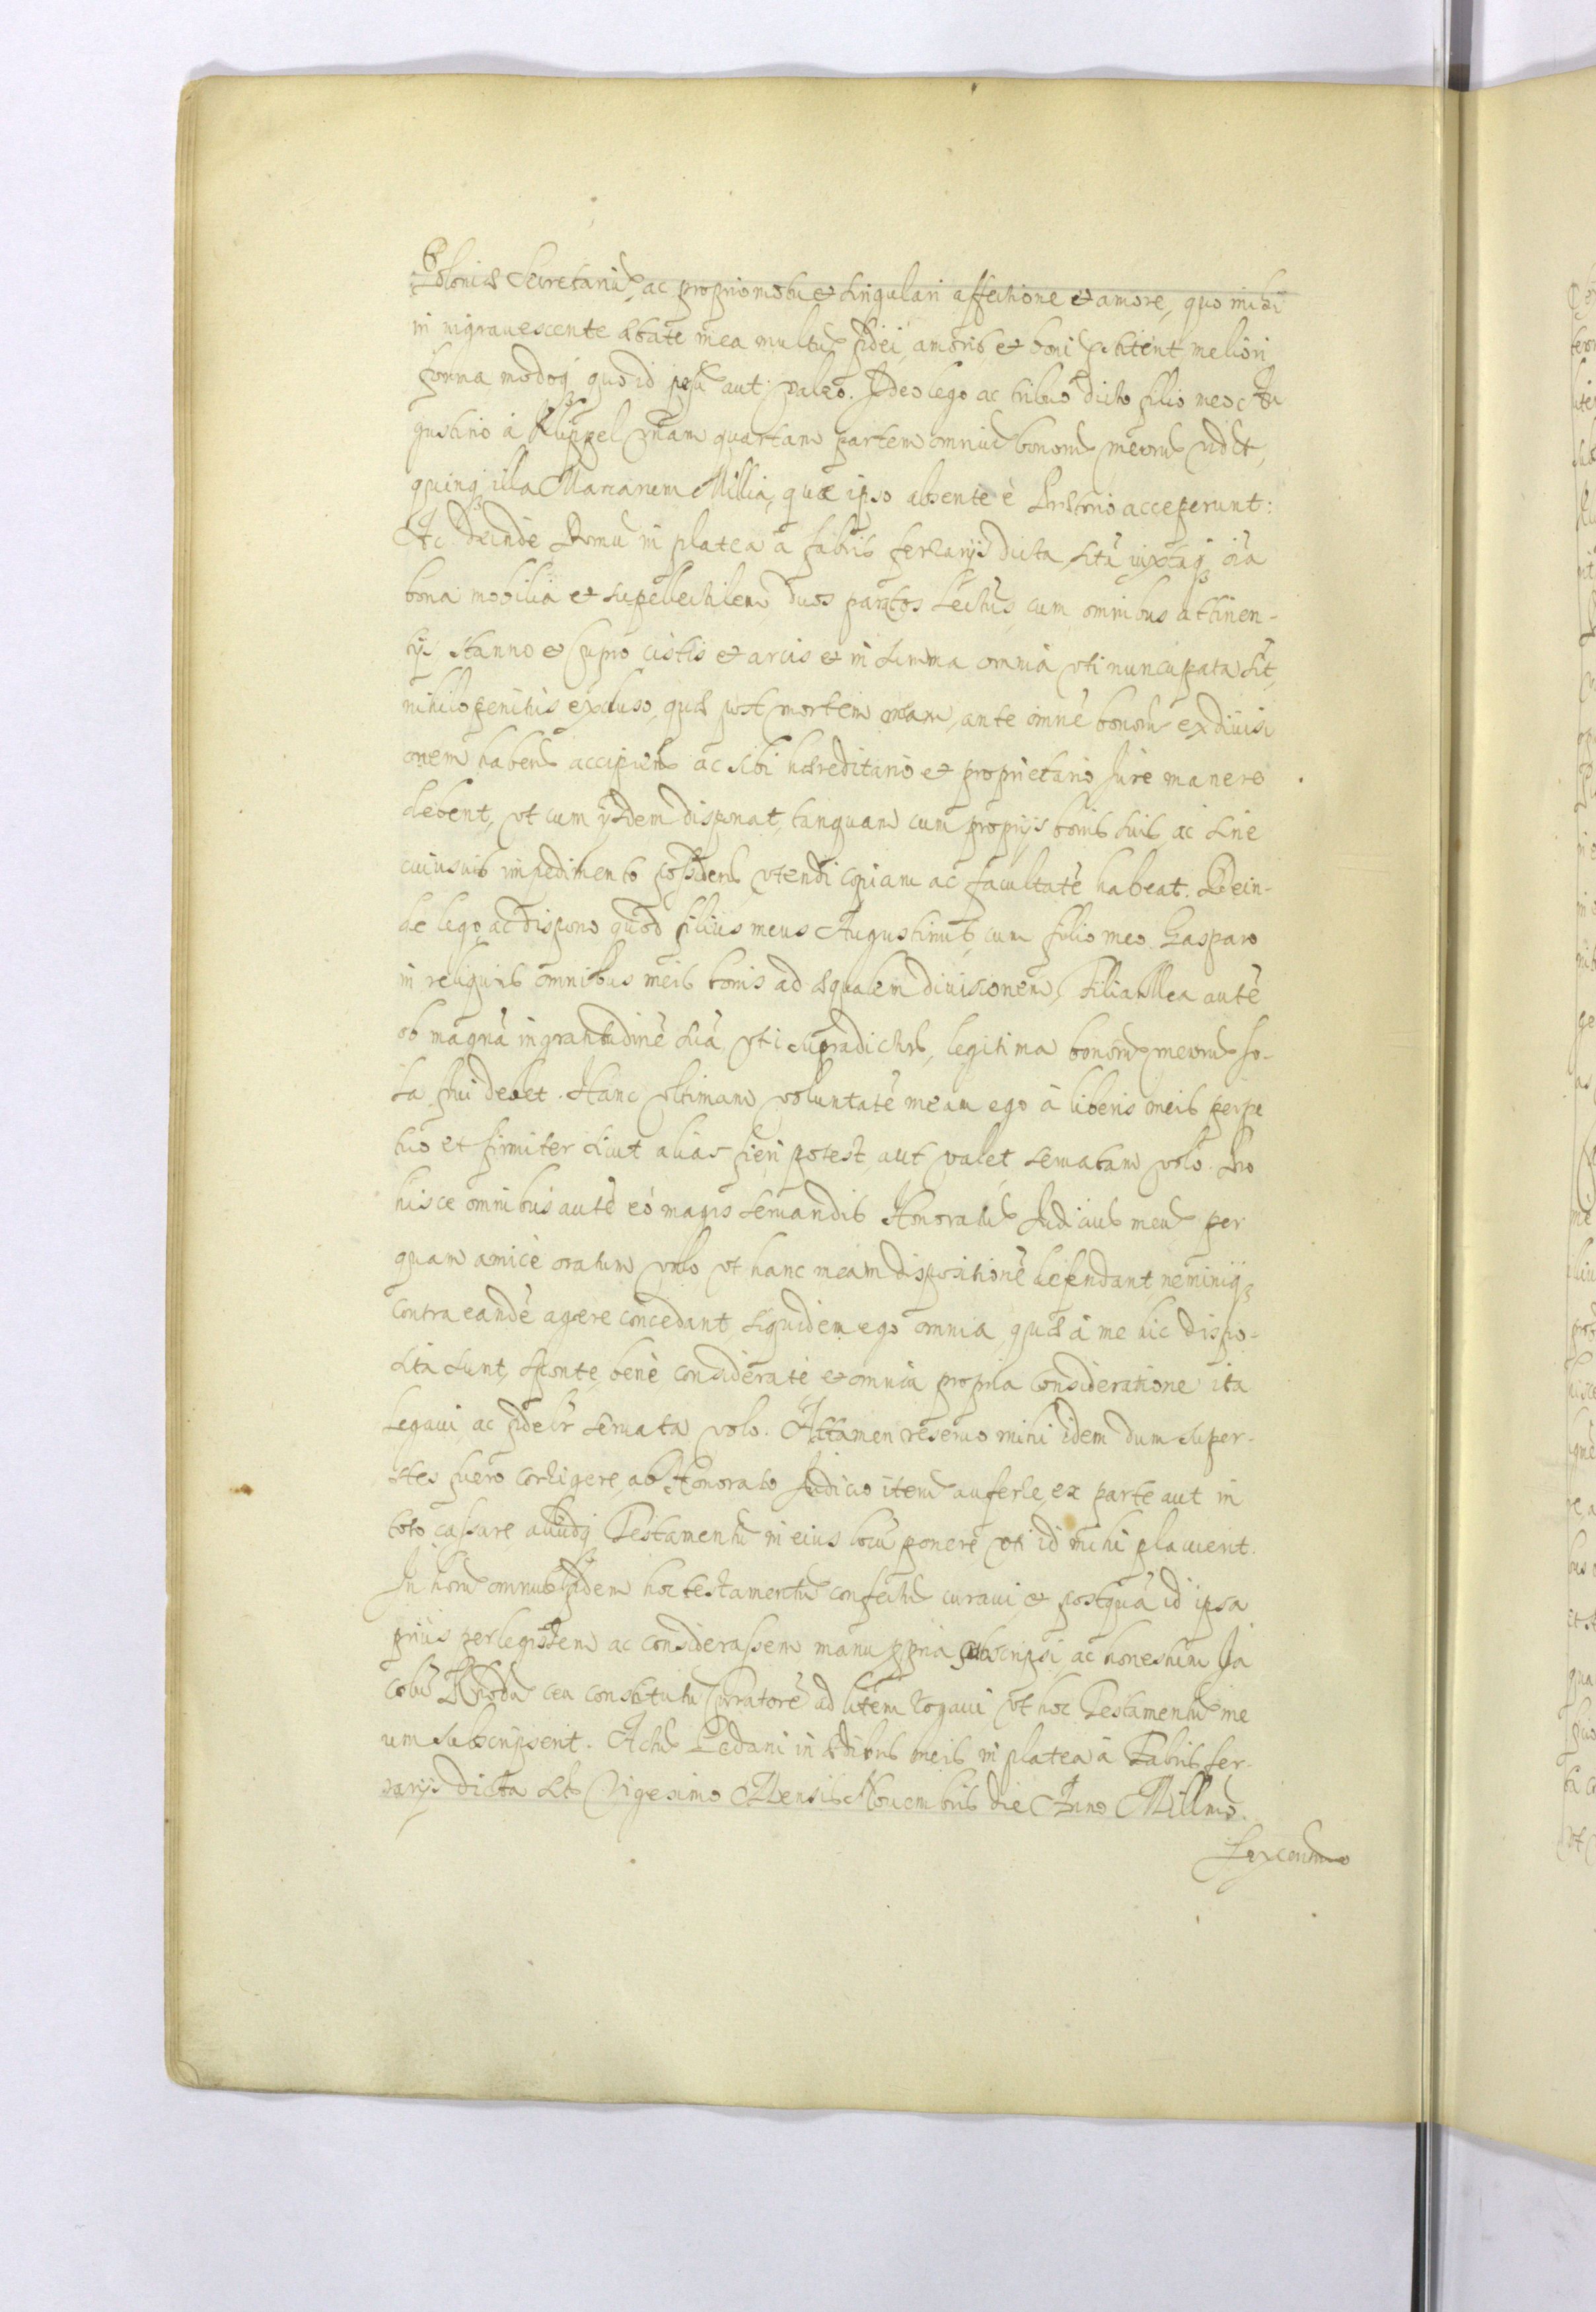 Poloniæ Secretariũ, ac proprio motu et singulari affectione et amore, quo mihi
in ingrauescente ætate mea multũ fidei, amoris et boni p̱stitent meliori
forma modoq́ quo id possũ aut valeo. Ideo lego ac tribuo dicto filio meo Au
gustino à Klüppel vnam quartam partem omniũ bonorũ meorũ videlt,
quinq́ illa Marcarum Millia, quæ ipso absente è Prætorio acceperunt:
Ac deinde Domũ in platea à fabris ferrarijs dicta, sitã iuxtaq́ oĩa
bona mobilia et supellectilem, duos paratos Lectus, cum omnibus attinen-
tijs, stanno et cupro cistis et arcis et in summa omnia vti nuncupata sĩt,
nihilo penitùs excluso, quæ post mortem meam, ante omnẽ bonorũ exdiuisi
onem habere accipere ac sibi hæreditario et proprietario Jure manere
debent, vt cum ijsdem disponat, tanquam cum proprijs bonis suis, ac sine
cuiusuis impedimento possidendi vtendi copiam ac facultatẽ habeat. Dein-
de lego ac dispono quòd filius meus Augustinus, cum filio meo Gasparo
in reliquis omnibus meis bonis ad æqualem diuisionem, Filia Mea autẽ
ob magnã ingratitudinẽ suã, vti supradictũ, legitima bonorũ meorũ so-
la frui debet. Hanc vltimam voluntatẽ meam ego à liberis meis perpe
tuo et firmiter sicut alias fieri potest aut valet seruatam volo. Pro
hisce omnibus autẽ eò magis seruandis Honoratũ Judiciũ meũ per
quam amicè oratum volo vt hanc meam dispositionẽ defendant, neminiq́
contra eandẽ agere concedant, siquidem ego omnia, quæ à me hic dispo-
sita sunt, sponte, benè consideratè et omnia propria consideratione ita
Legaui, ac fidelr seruata volo. Attamen reseruo mihi idem dum super-
stes fuero corrigere, ab Honorato Judicio itẽm auferre, ex parte aut in
toto cassare aliudq́ Testamentũ in eius locũ ponere vti id mihi placuerit.
In horũ omniũ fidem hoc testamentũ confectũ curaui et postquã id ipsa
priùs perlegissem ac considerassem manu ppria subscripsi, ac honestum Ja
cobũ Rhodẽ ceu constitutũ Curatorẽ ad litem rogaui vt hoc Testamentũ me
um subscripserit. Actũ Gedani in ædibus meis in platea à Fabris fer-
rarijs dicta st̃s Vigesimo Mensis Nouembris die Anno Millmo.
Sexcentmo